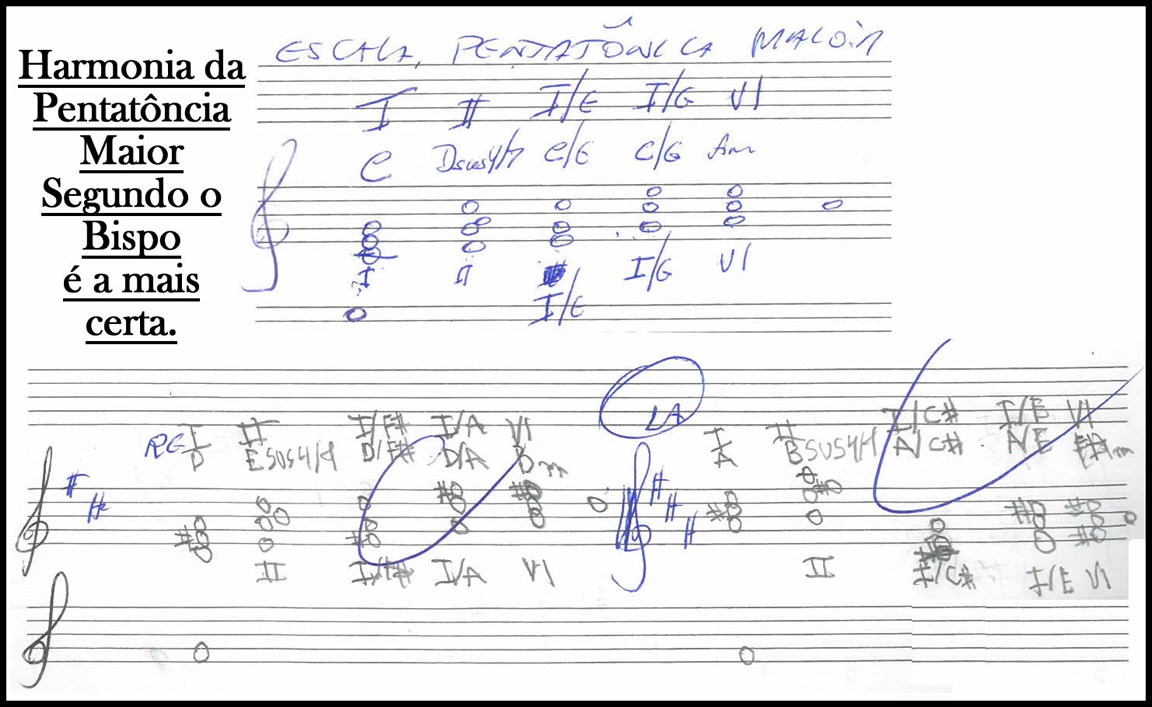 Harmonia da
Pentatôncia
Maior
Segundo o
Bispo
é a mais
certa.
ESCALA PENTATÔNICA MAIOR
I II I/E I/G VI
C Dsus4/7 C/E C/G Am
I II I/G VI
I/E
RE I II I/F# I/A VI
D Esus4/4 D/F# D/A
LA I II I/C# I/E VI
A Bsus4/4 A/C# A/E
II I/F# I/A VI
II I/C# I/E VI